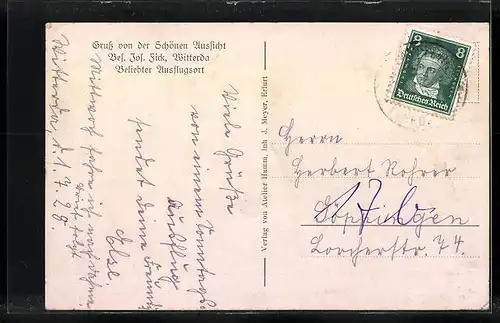 Gruß von der Schönen Aussicht
Bes. Jos. Fick, Witterda
Beliebter Ausflugsort
Witterda, d. 1.7.28.
Mittwoch fahre ich nach
Viele Grüße
von einem Sonntags-
Ausflug
sendet Deine
Else
Verlag von Atelier Hamm, Inh. J. Meyer, Erfurt
8 8
Deutsches Reich
Herrn
Herbert Rohrer
Göppingen
Lorcherstr. 74